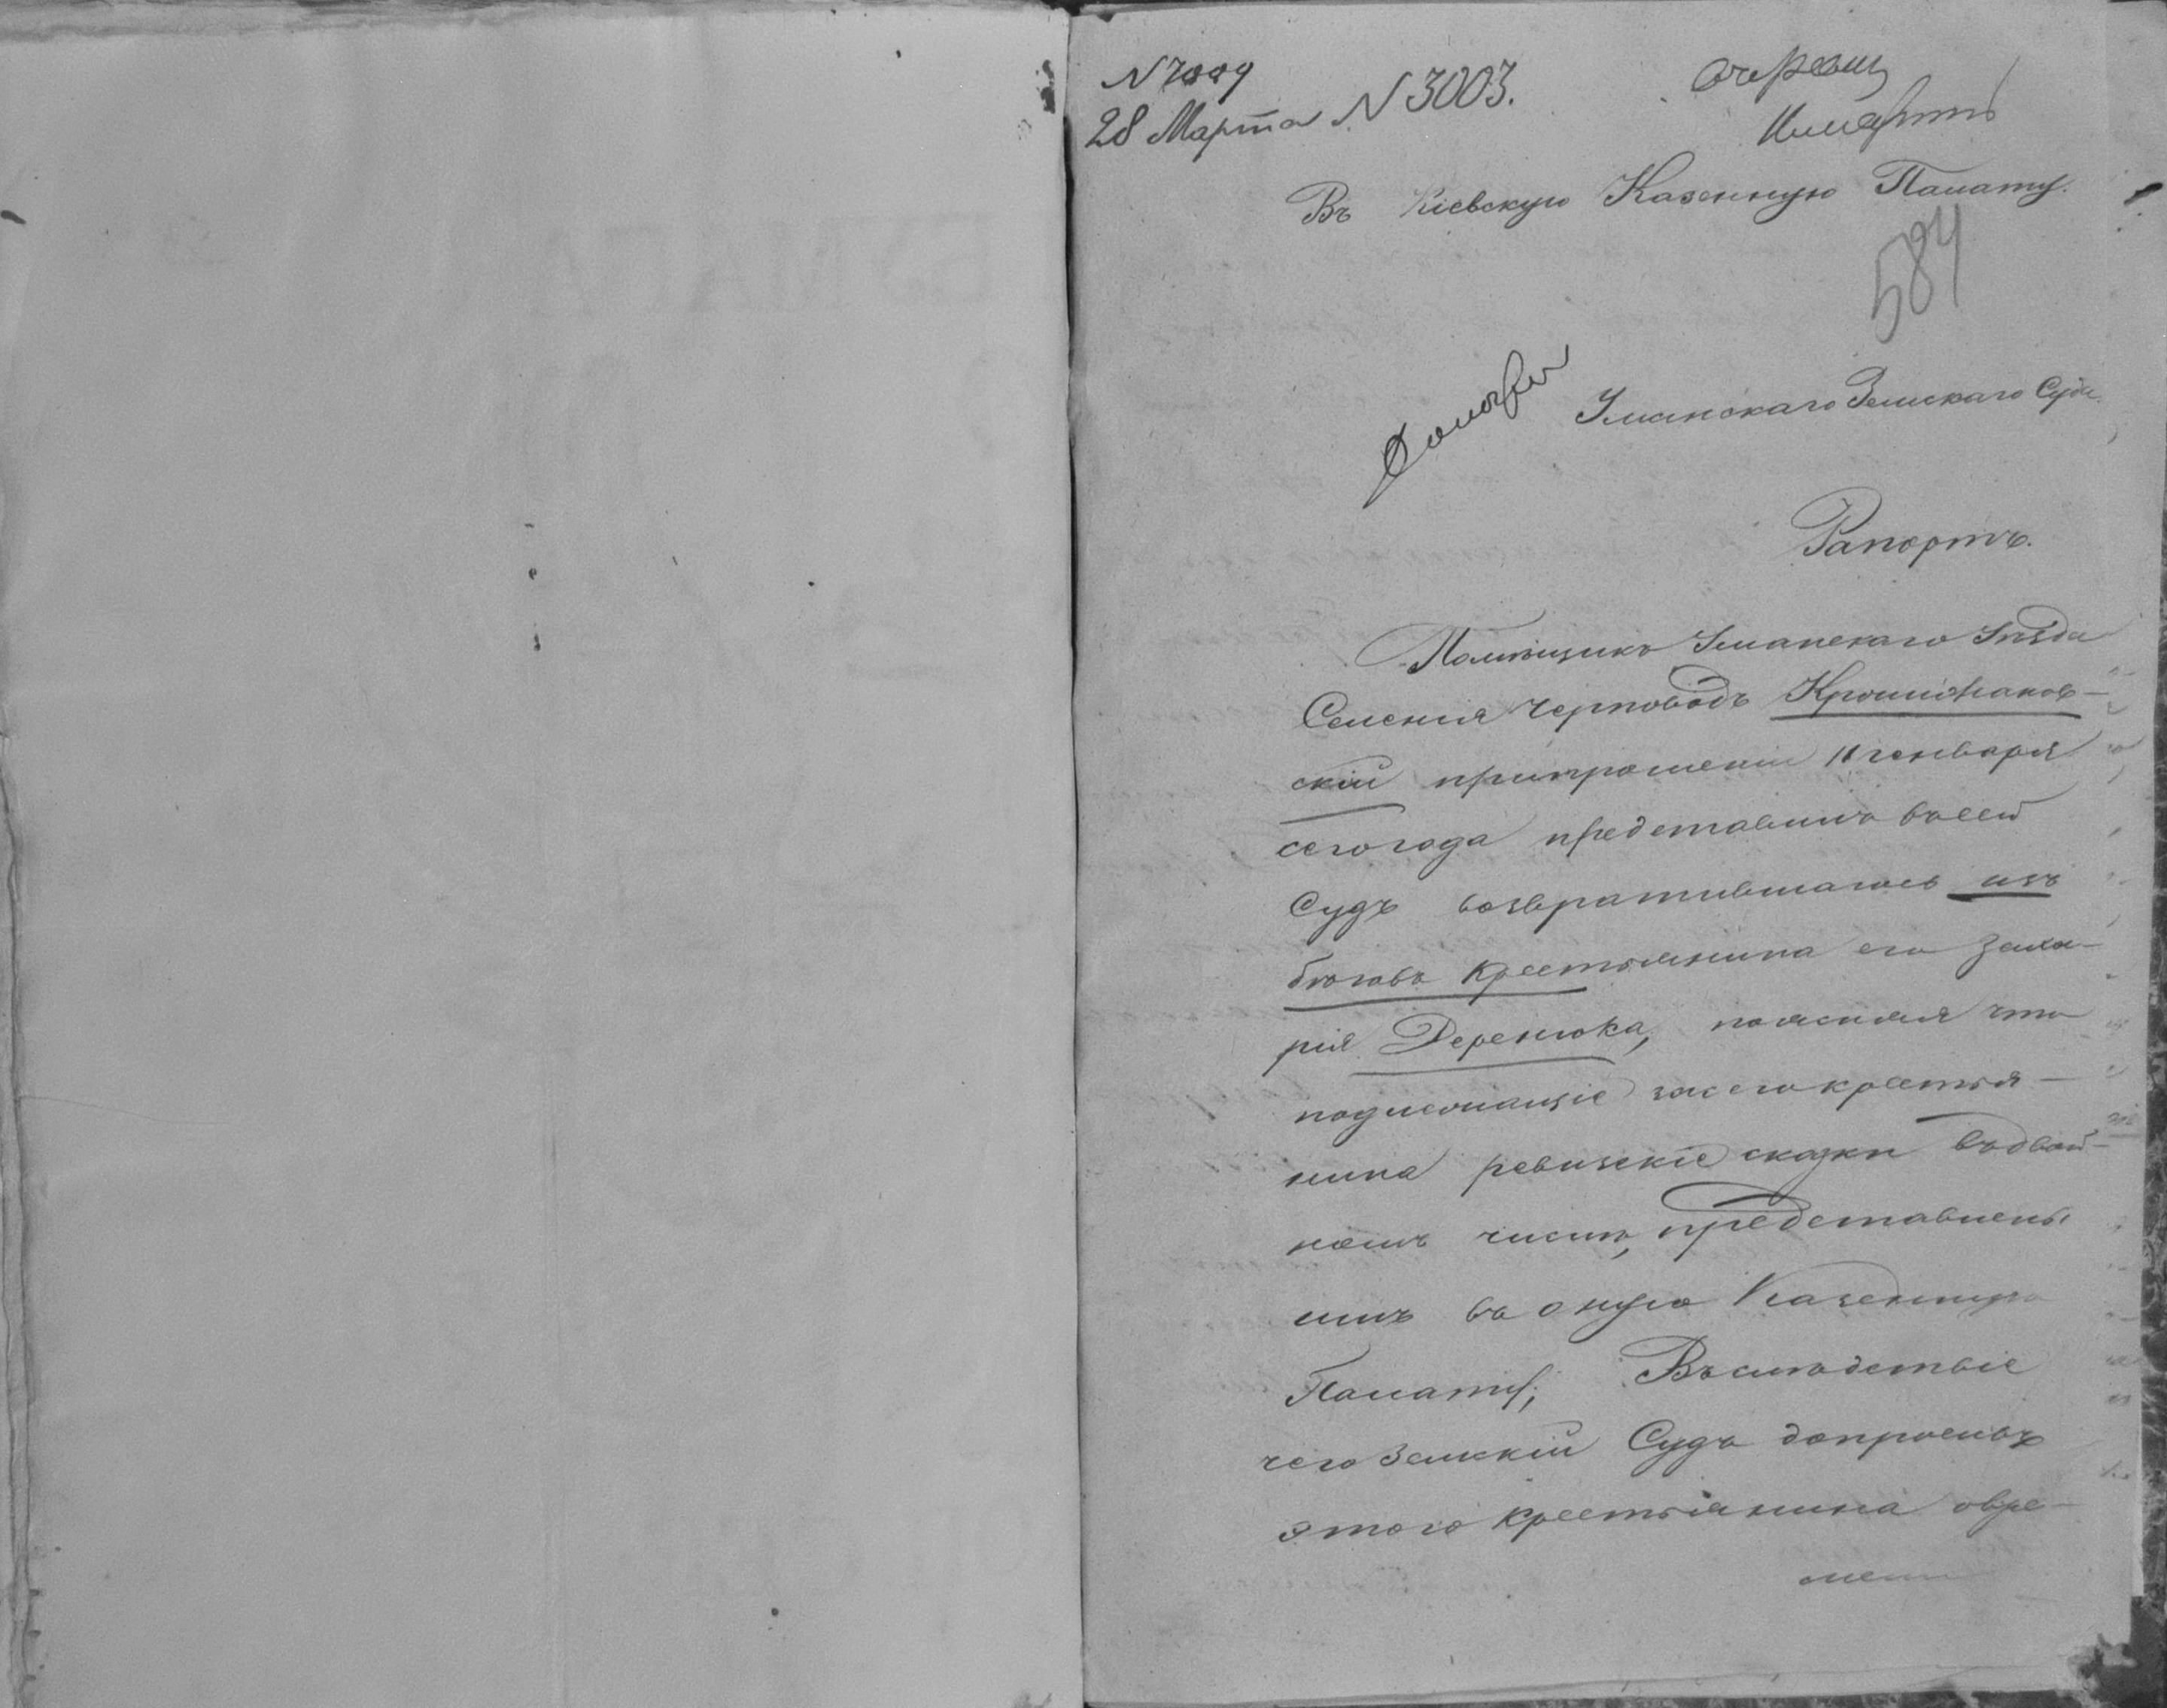 28 Марта N 3003.
Въ Кіевскую Казенную Палату.
584
Уманскаго Земскаго Суда
Рапортъ.
Помѣщикъ Уманскаго Уѣзда
Селенія Черповодъ
скій припрошеніи 11 генваря
сего года представилъ въсей
Судъ возвратившагось изъ
бѣговъ крестьянина его Заха-
рія Деренюка, поясняя что
подлежащіе засего крестья-
нина ревизскіе сказки въдвой-
номъ числѣ, представлены
имъ въ оную Казенную
Палату; Въслѣдствіе
чего Земскій Судъ допросивъ
этого крестьянина овре-
мени